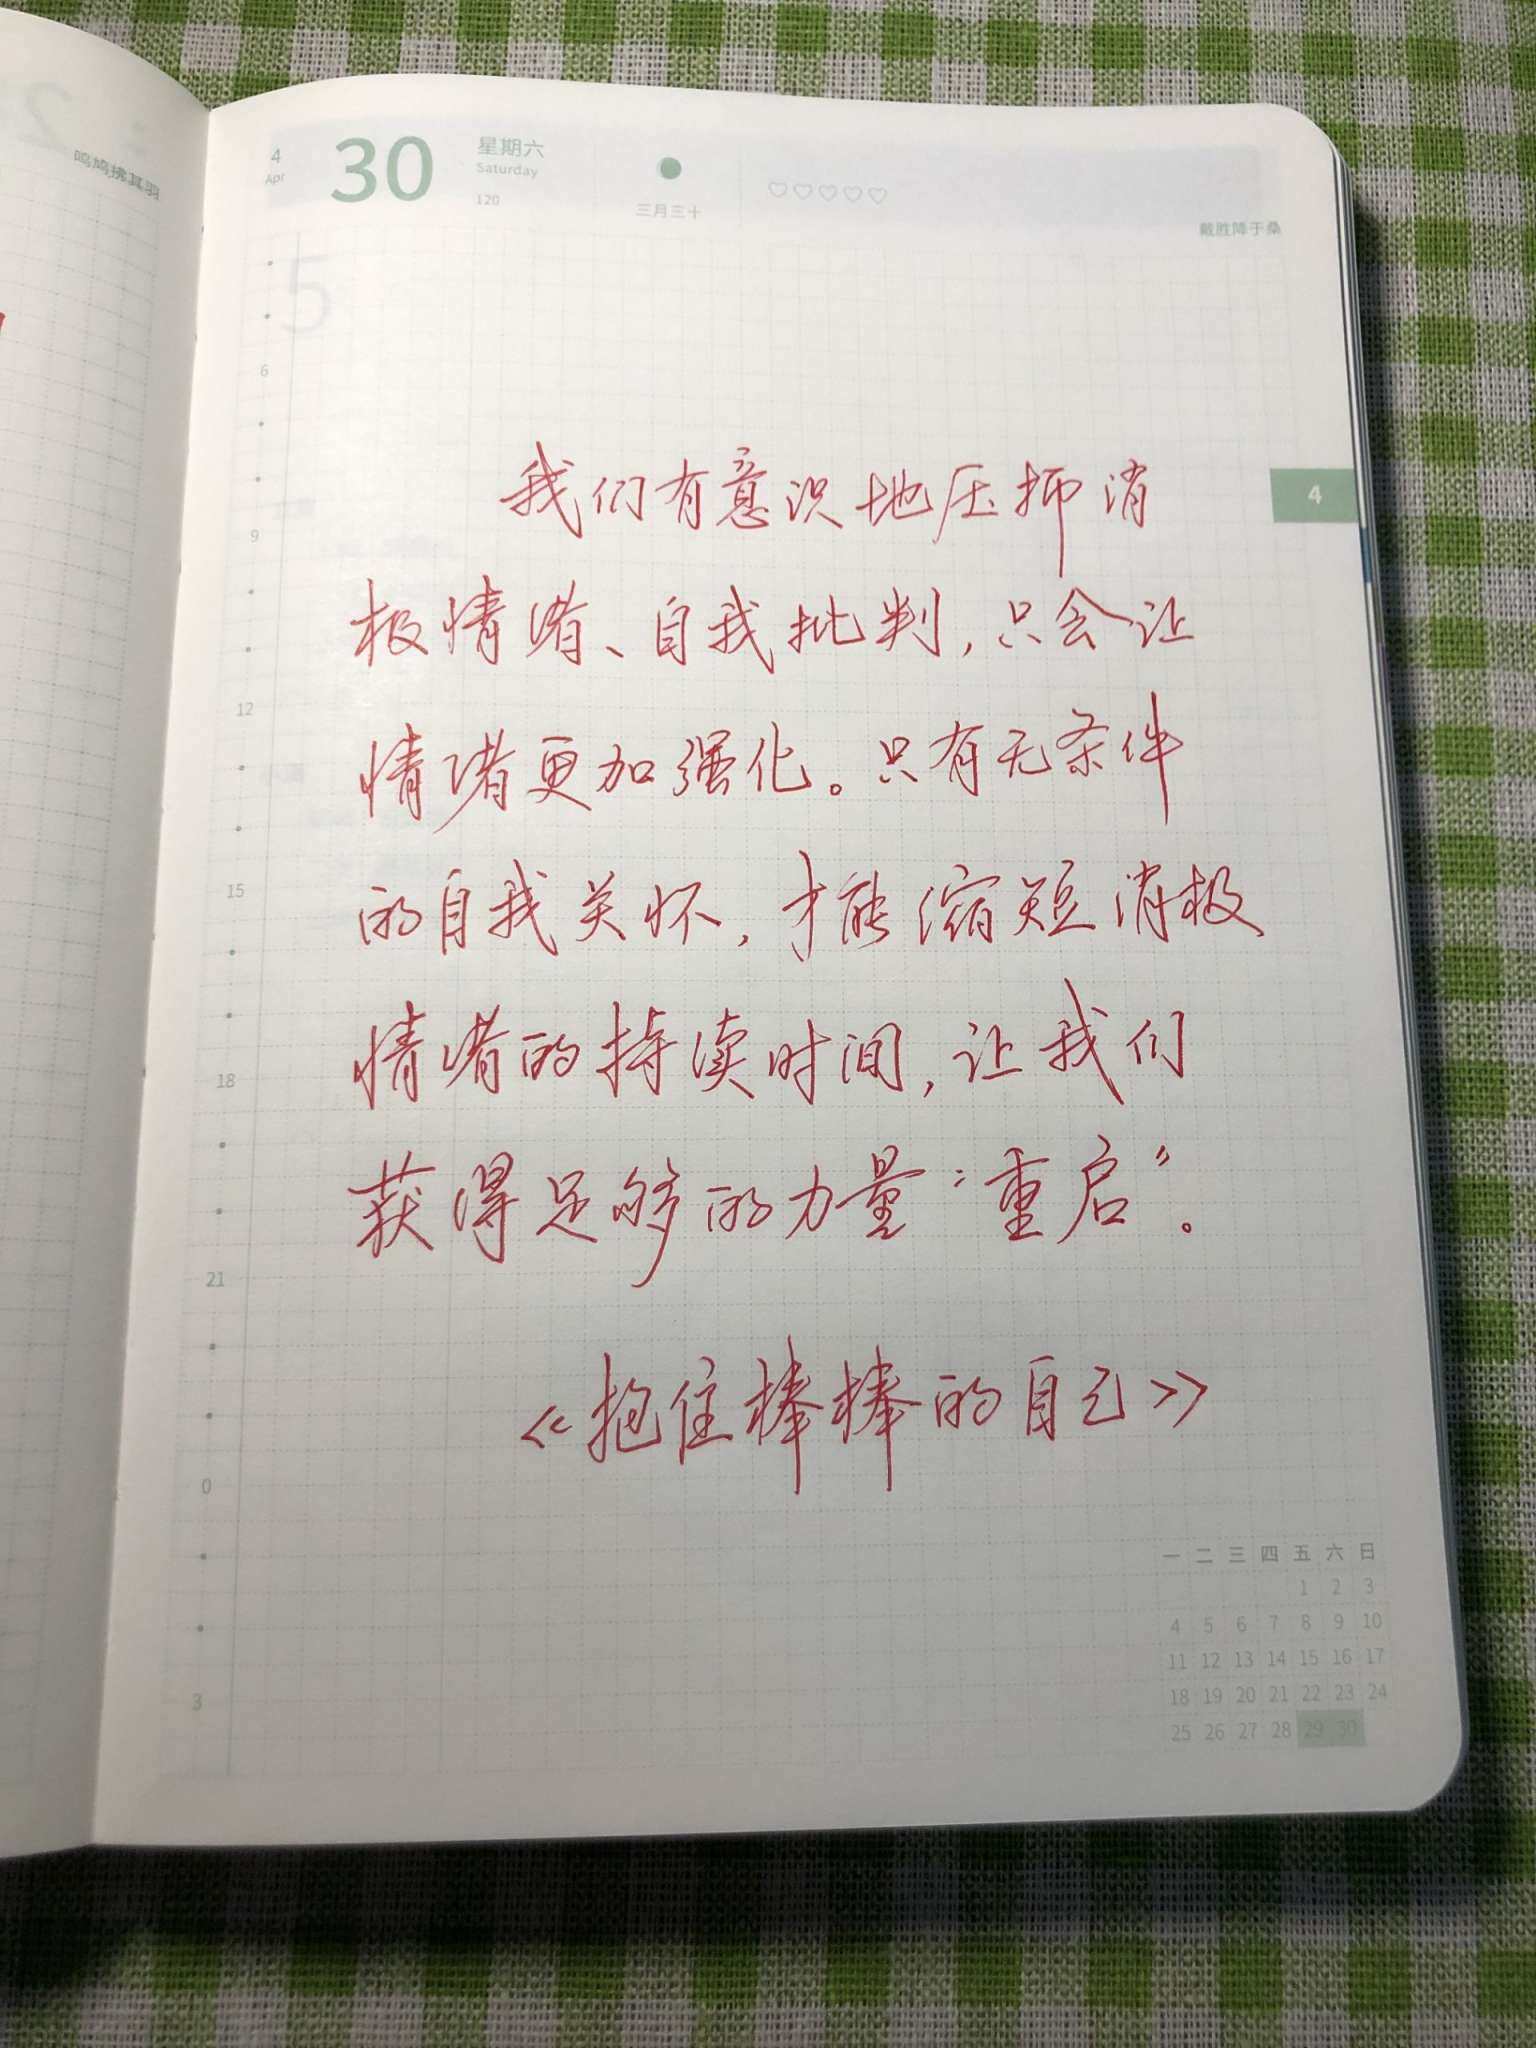 鸣鸠拂其羽
4
Apr
30
星期六
Saturday
120
三月三十
戴胜降于桑
5
4
6
9
12
15
18
21
0
3
我们有意识地压抑消
极情绪、自我批判,只会让
情绪更加强化。只有无条件
的自我关怀,才能缩短消极
情绪的持续时间,让我们
获得足够的力量“重启”。
《抱住棒棒的自己》
一 二 三 四 五 六 日
1 2 3
4 5 6 7 8 9 10
11 12 13 14 15 16 17
18 19 20 21 22 23 24
25 26 27 28 29 30